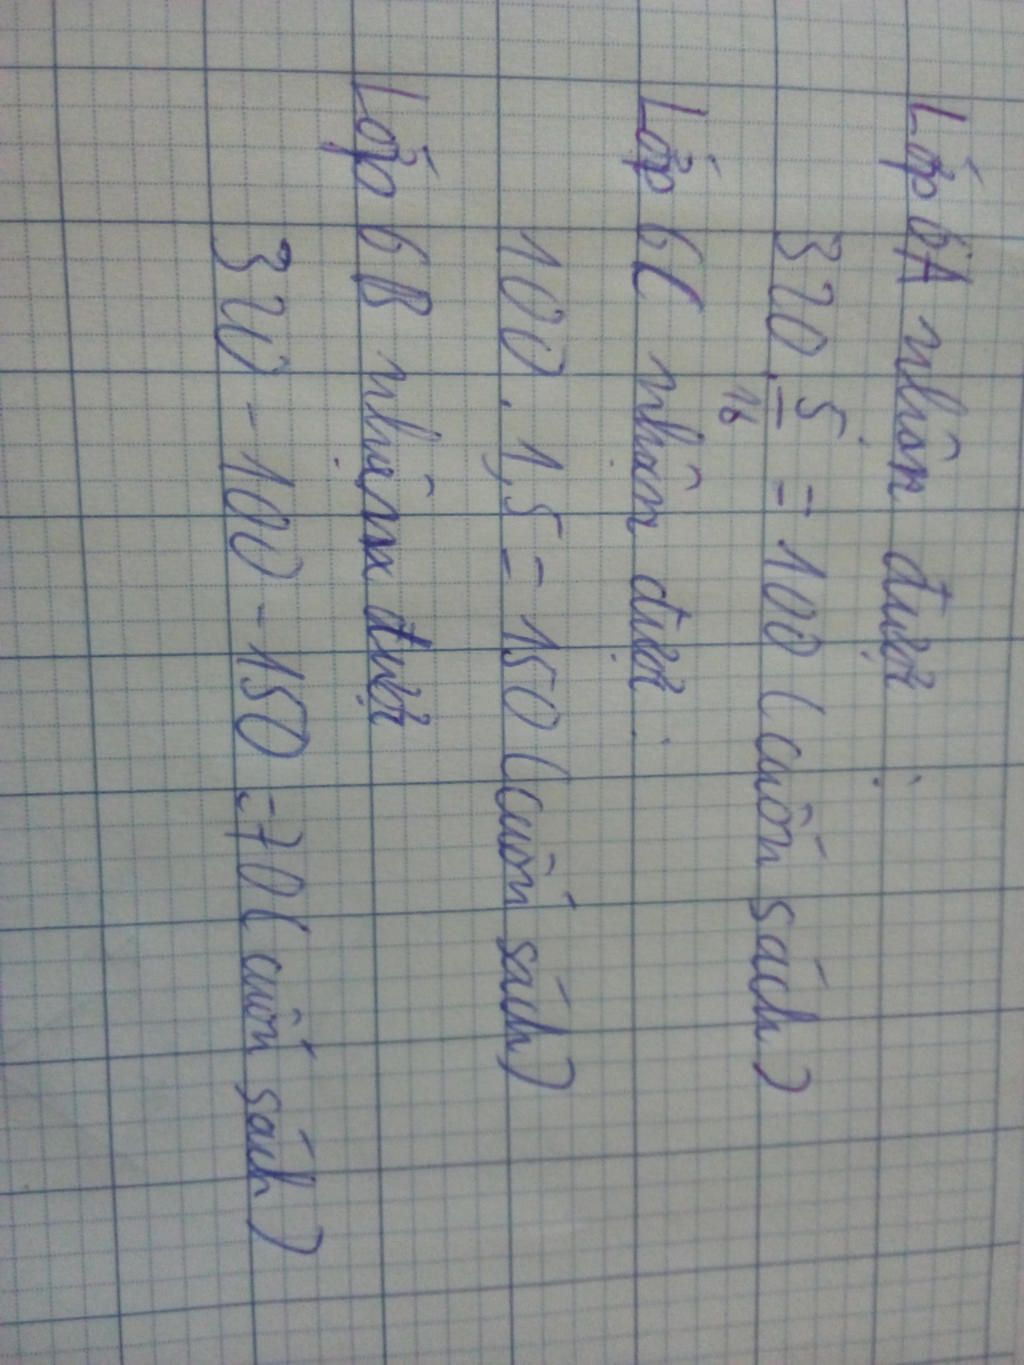 Lớp 6A nhận được :
320 . 5/16 = 100 (cuốn sách)
Lớp 6C nhận được :
100 . 1,5 = 150 (cuốn sách)
Lớp 6B nhận được
320 - 100 - 150 = 70 (cuốn sách)